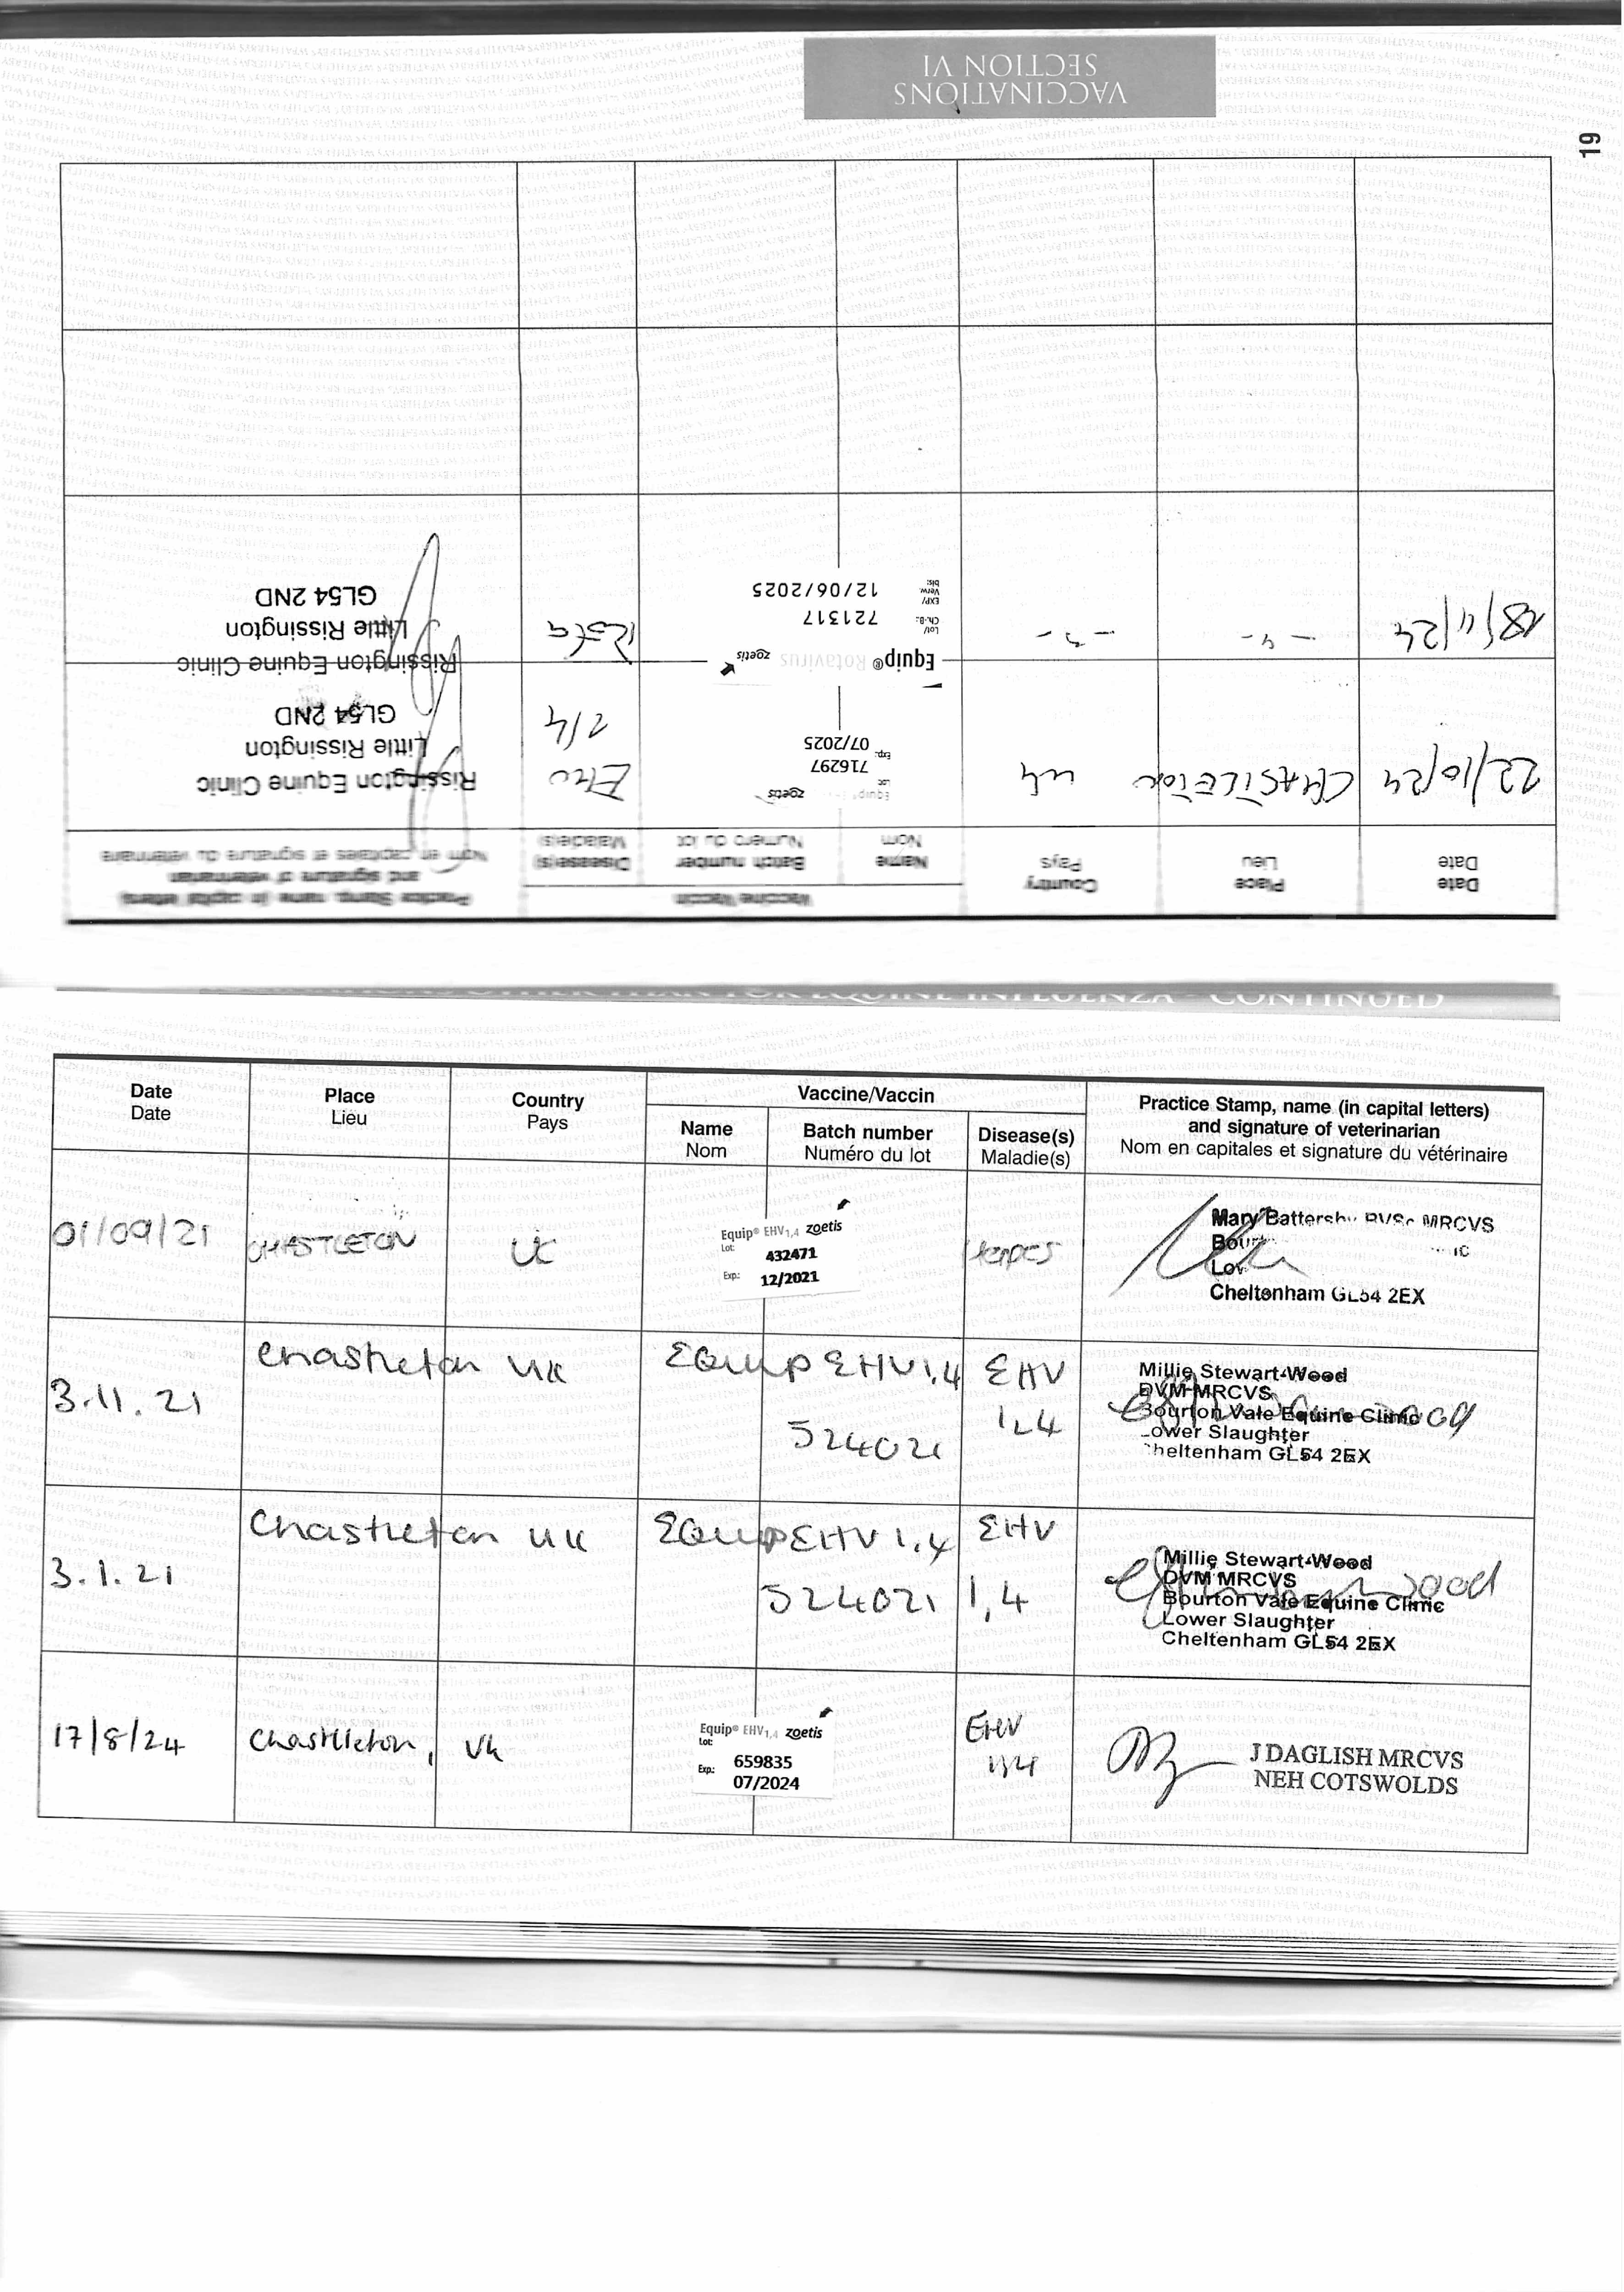 VACCINATIONS
SECTION VI
19
Date
Date
Place
Lieu
Country
Pays
Vaccine/Vaccin
Name
Nom
Batch number
Numéro du lot
Disease(s)
Maladie(s)
Practice Stamp, name (in capital letters)
and signature of veterinarian
Nom en capitales et signature du vétérinaire
22/10/24
CHASTLETON
UK
Equip zoetis
Lot:
716297
Exp:
07/2025
EHV
1/4
Rissington Equine Clinic
Little Rissington
GL54 2ND
18/11/24
- " -
- " -
Equip® Rotavirus zoetis
Lot/
Ch.-B.:
721317
EXP/
Verw.
bis:
12/06/2025
Rota
Rissington Equine Clinic
Little Rissington
GL54 2ND
OTHER THAN FOR EQUINE INFLUENZA - CONTINUED
Date
Date
Place
Lieu
Country
Pays
Vaccine/Vaccin
Name
Nom
Batch number
Numéro du lot
Disease(s)
Maladie(s)
Practice Stamp, name (in capital letters)
and signature of veterinarian
Nom en capitales et signature du vétérinaire
01/09/21
CHASTLETON
UK
Equip® EHV1,4 zoetis
Lot:
432471
Exp:
12/2021
Herpes
Mary Battersby BVSc MRCVS
Cheltenham GL54 2EX
3.11.21
Chastleton
UK
Equip EHV1,4
524021
EHV
1,4
Millie Stewart-Wood
DVM MRCVS
Bourton Vale Equine Clinic
Lower Slaughter
Cheltenham GL54 2EX
3.1.21
Chastleton
UK
Equip EHV1,4
524021
EHV
1,4
Millie Stewart-Wood
DVM MRCVS
Bourton Vale Equine Clinic
Lower Slaughter
Cheltenham GL54 2EX
17/8/24
Chastleton,
UK
Equip® EHV1,4 zoetis
Lot:
659835
Exp:
07/2024
EHV
1,4
J DAGLISH MRCVS
NEH COTSWOLDS